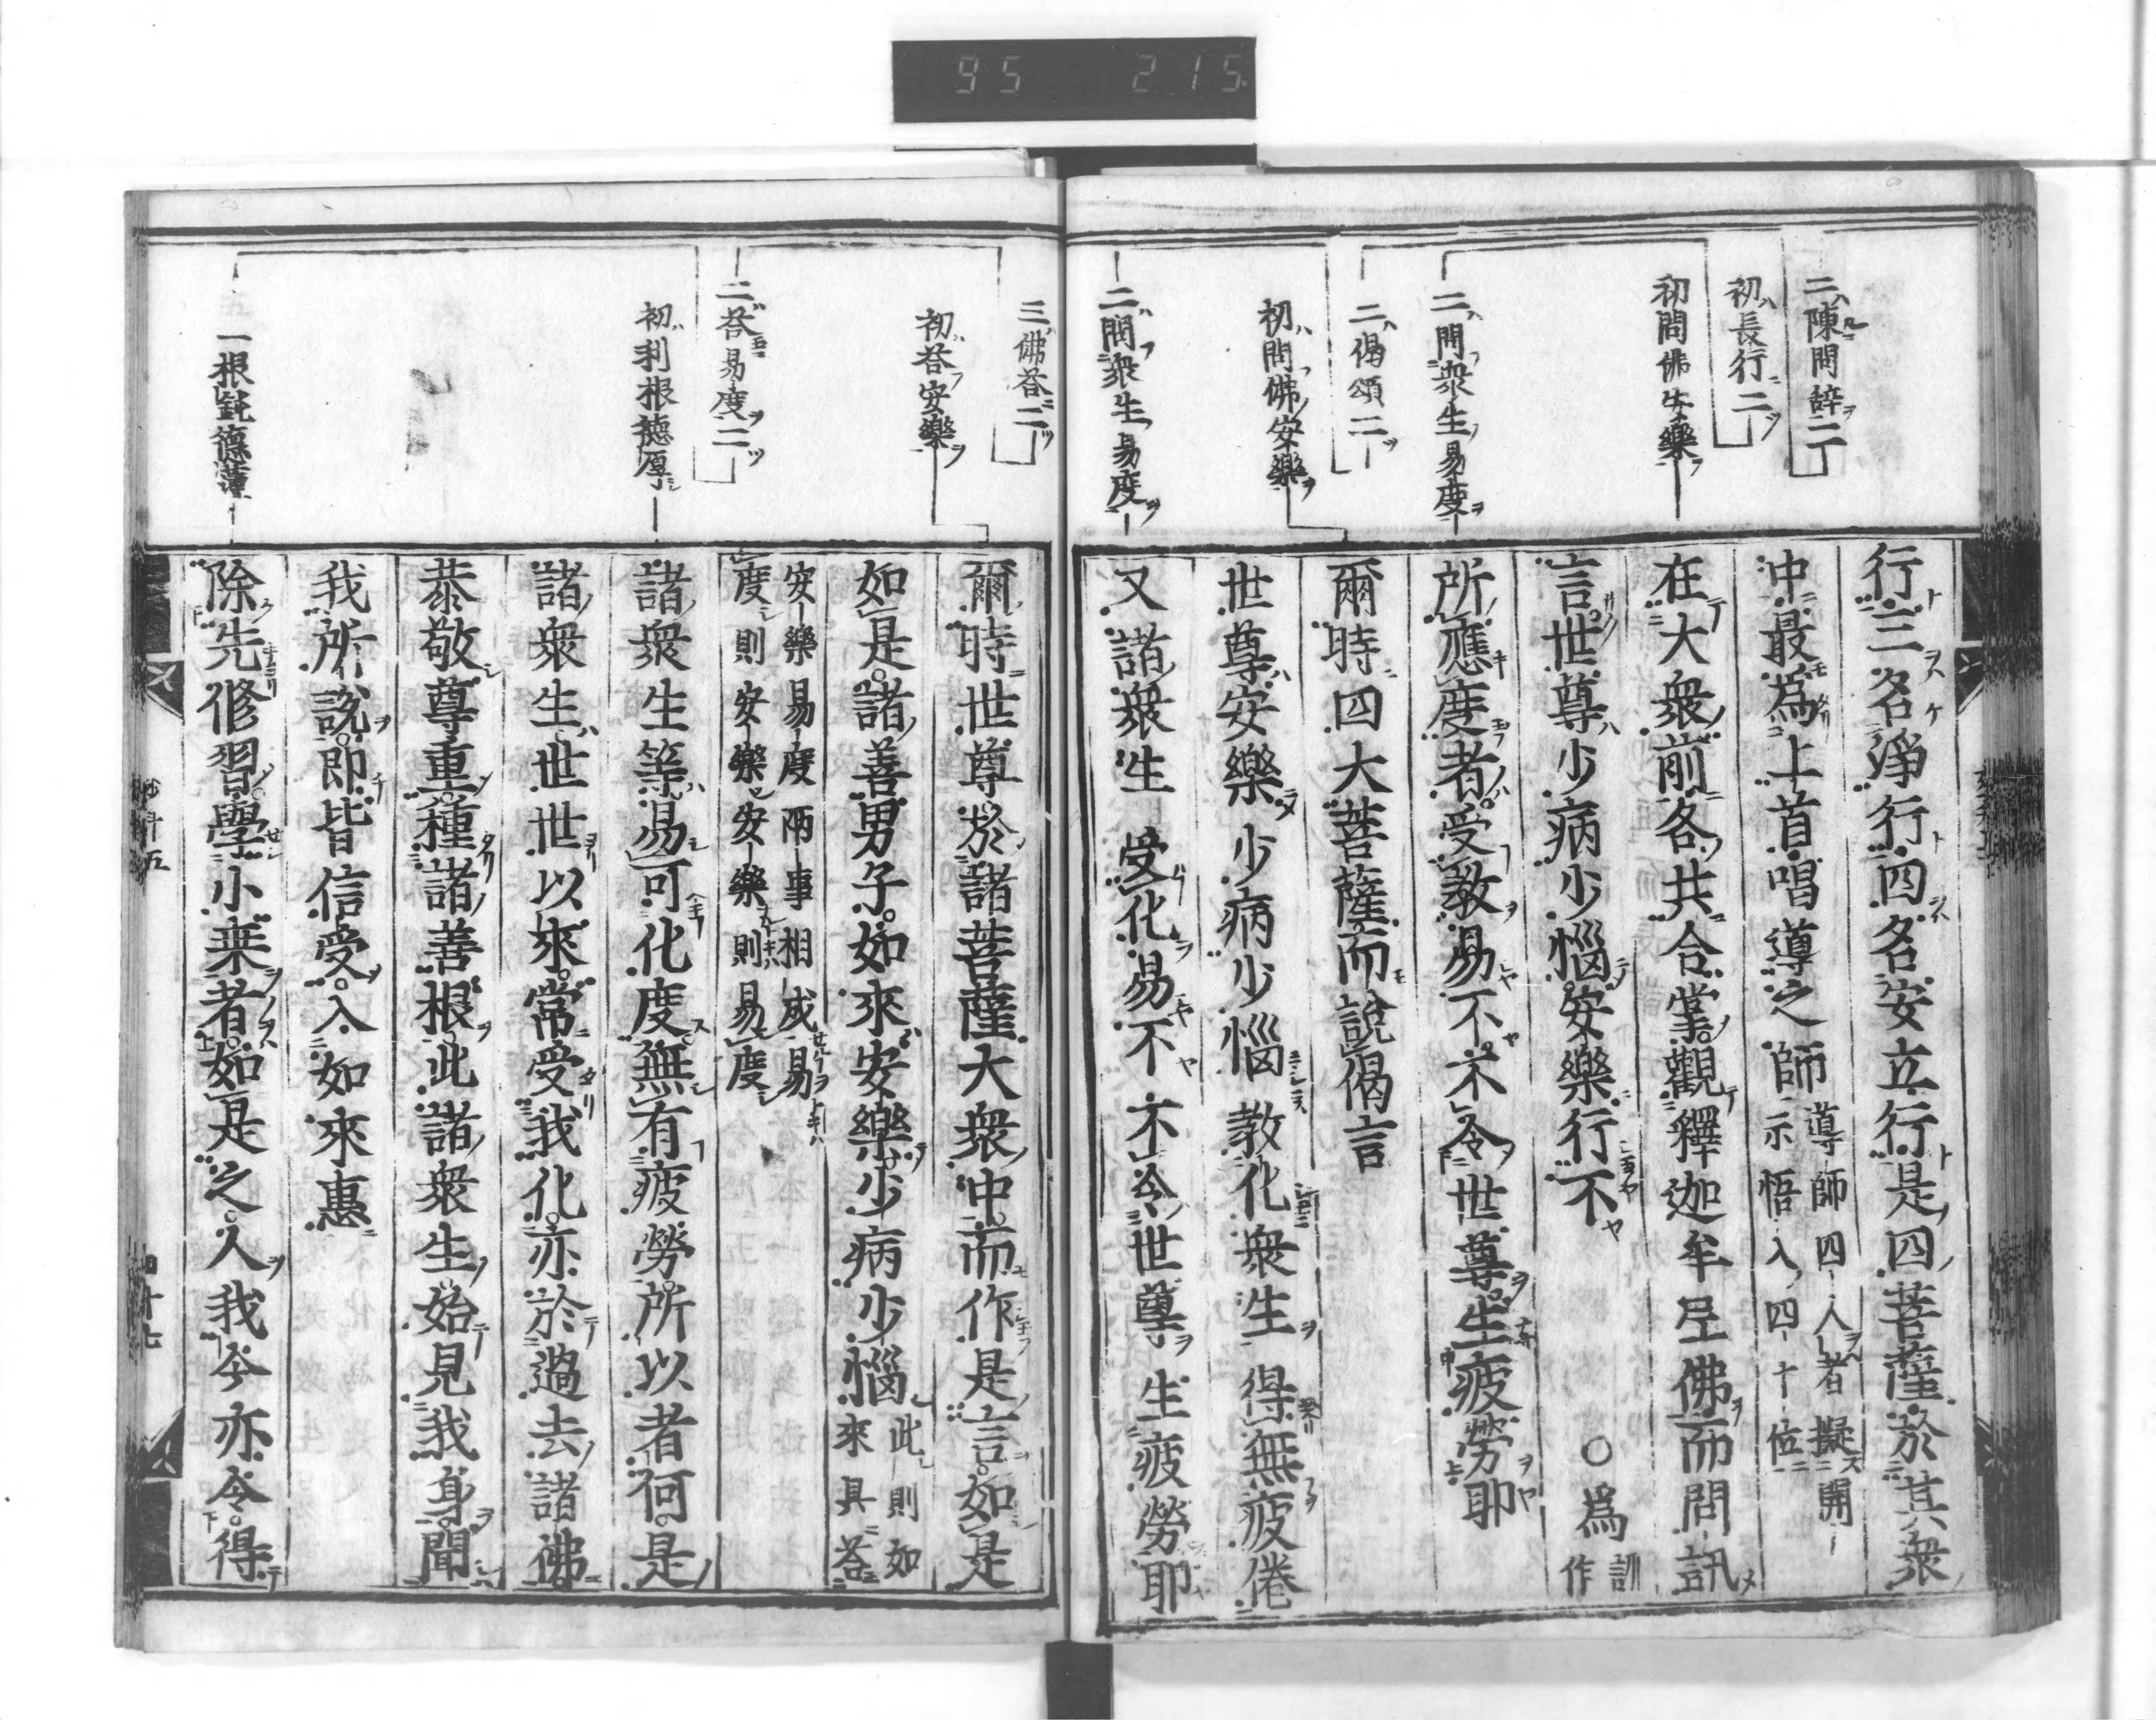 95 215
二陳問辭二
初長行二
初問佛安樂
二問衆生易度
二偈頌二
初問佛安樂
二問衆生易度
行三名淨行四名安立行是四菩薩於其衆
中最為上首唱導之師
導師四人者擬開
示悟入四十位
在大衆前各共合掌觀釋迦牟尼佛而問訊
言世尊少病少惱安樂行不
○為
訓
作
所應度者受教易不不令世尊生疲勞耶
爾時四大菩薩而說偈言
世尊安樂 少病少惱 教化衆生 得無疲倦
又諸衆生 受化易不 不令世尊 生疲勞耶
三佛荅二
初荅安樂
二荅易度二
初利根德厚
二根鈍德薄
爾時世尊於諸菩薩大衆中而作是言如是
如是諸善男子如來安樂少病少惱
此則如
來具荅
安樂易度兩事相成易
度則安樂安樂則易度
諸衆生等易可化度無有疲勞所以者何是
諸衆生世世以來常受我化亦於過去諸佛
恭敬尊重種諸善根此諸衆生始見我身聞
我所說即皆信受入如來惠
除先修習學小乘者如是之人我今亦令得
四十七